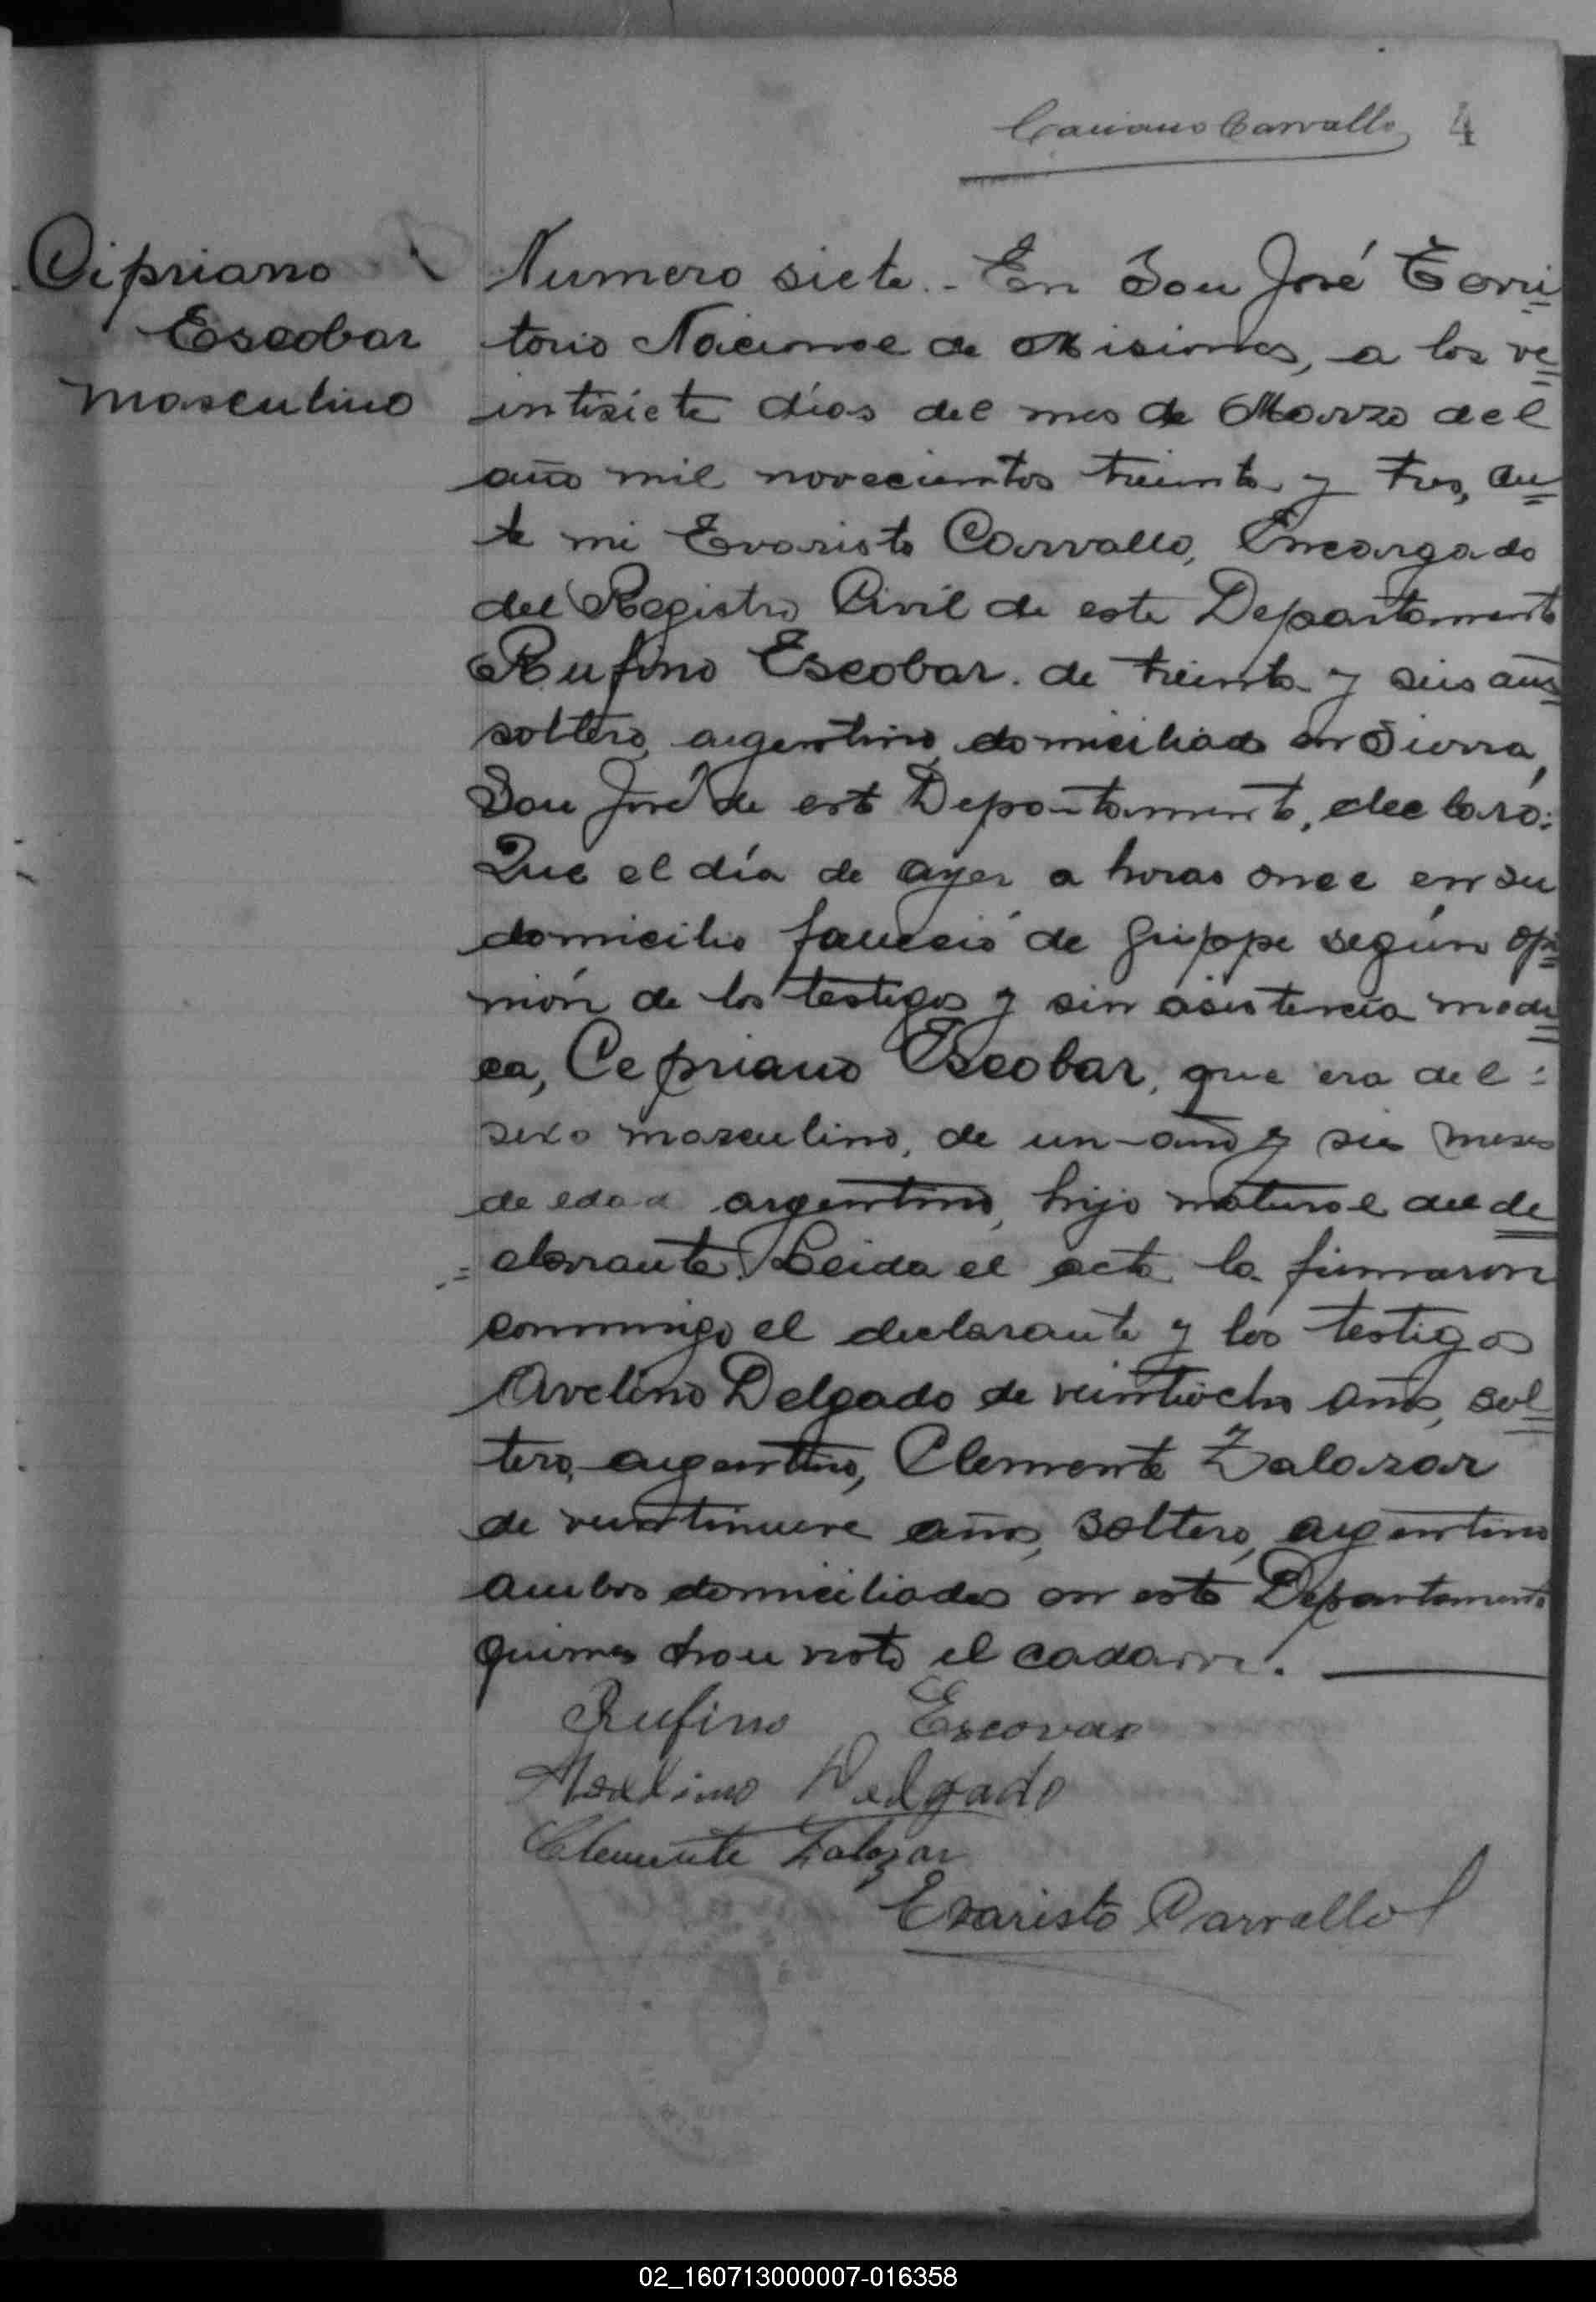 Carvallo 4
Cipriano
Escobar
masculino
Numero siete.- En San José Terri
torio Nacional de Misiones, a los ve
intisiete días del mes de Marzo del
año mil novecientos treinta y tres, an
te mi Evaristo Carvallo, Encargado
del Registro Civil de este Departamento
Rufino Escobar. de treinta y seis años
soltero, argentino, domiciliado en Sierra,
San José de este Departamento, declaró:
Que el día de ayer a horas once en su
domicilio falleció de grippe según opi
nión de los testigos y sin asistencia medi
ca, Cepriano Escobar, que era del
sexo masculino, de un año y seis meses
de edad argentino, hijo natural del de
clarante. Leida el acta la firmaron
conmigo el declarante y los testigos
Avelino Delgado de veintiocho años, sol
tero, argentino, Clemente Zalazar
de veintinueve años, soltero, argentino
ambos domiciliados en este Departamento
quienes han visto el cadaver.
Rufino Escovar
Avelino Delgado
Clemente Zalazar
Evaristo Carvallo
02_160713000007-016358